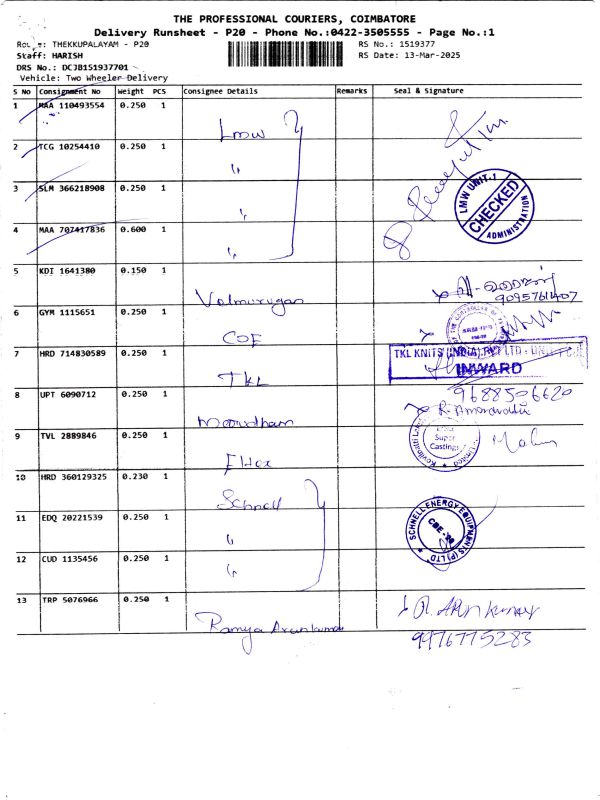 THE PROFESSIONAL COURIERS, COIMBATORE
Delivery Runsheet - P20 - Phone No.:0422-3505555 - Page No.:1
THEKKUPALAYAM - P20
RS No.: 1519377
Staff: HARISH
RS Date: 13-Mar-2025
DRS No.: DCJB151937701
Vehicle: Two Wheeler Delivery
S No Consignment No Weight PCS Consignee Details Remarks Seal & Signature
1 MAA 110493554 0.250 1 Lmw
2 TCG 10254410 0.250 1 "
3 SLM 366218908 0.250 1 "
LMW UNIT-1 CHECKED ADMINISTRATION
4 MAA 707417836 0.600 1 "
5 KDI 1641380 0.150 1 Velmurugan
9095761407
6 GYM 1115651 0.250 1 COE
7 HRD 714830589 0.250 1 TKL
TKL KNITS (INDIA) PVT LTD
INWARD
8 UPT 6090712 0.250 1
9688506620
9 TVL 2889846 0.250 1
Super Castings
10 HRD 360129325 0.230 1 Schnell
11 EDQ 20221539 0.250 1 "
SCHNELL ENERGY EQUIPMENTS (P) LTD
12 CUD 1135456 0.250 1 "
13 TRP 5076966 0.250 1 Ramya Arunkumar
R. Arun kumar
9976775283